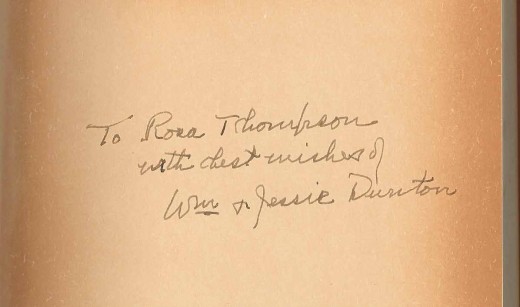 To Rosa Thompson
with best wishes of
Wm & Jessie Dunton